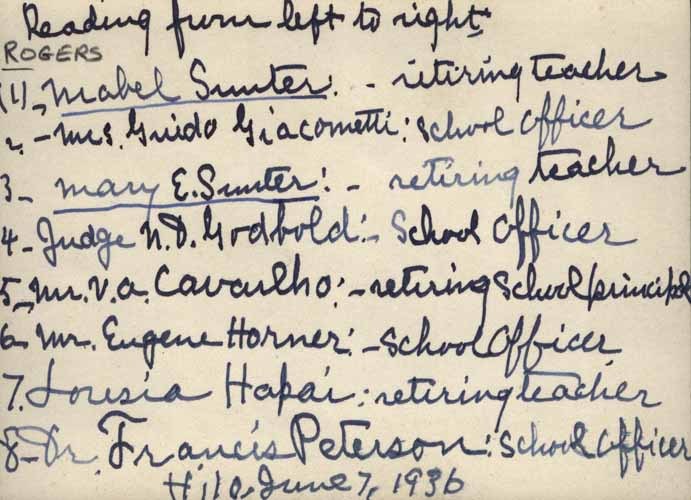 Reading from left to right:
ROGERS
(1)- Mabel Sunter: - retiring teacher
2. - Mrs. Guido Giacometti: School officer
3- Mary E. Sunter: - retiring teacher
4- Judge N.D. Godbold: - School Officer
5- Mr. V.A. Cavarlho: - retiring School principal
6- Mr. Eugene Horner: - School Officer
7. Lousia Hapai: retiring teacher
8- Dr. Francis Peterson: School Officer
Hilo, June 7, 1936